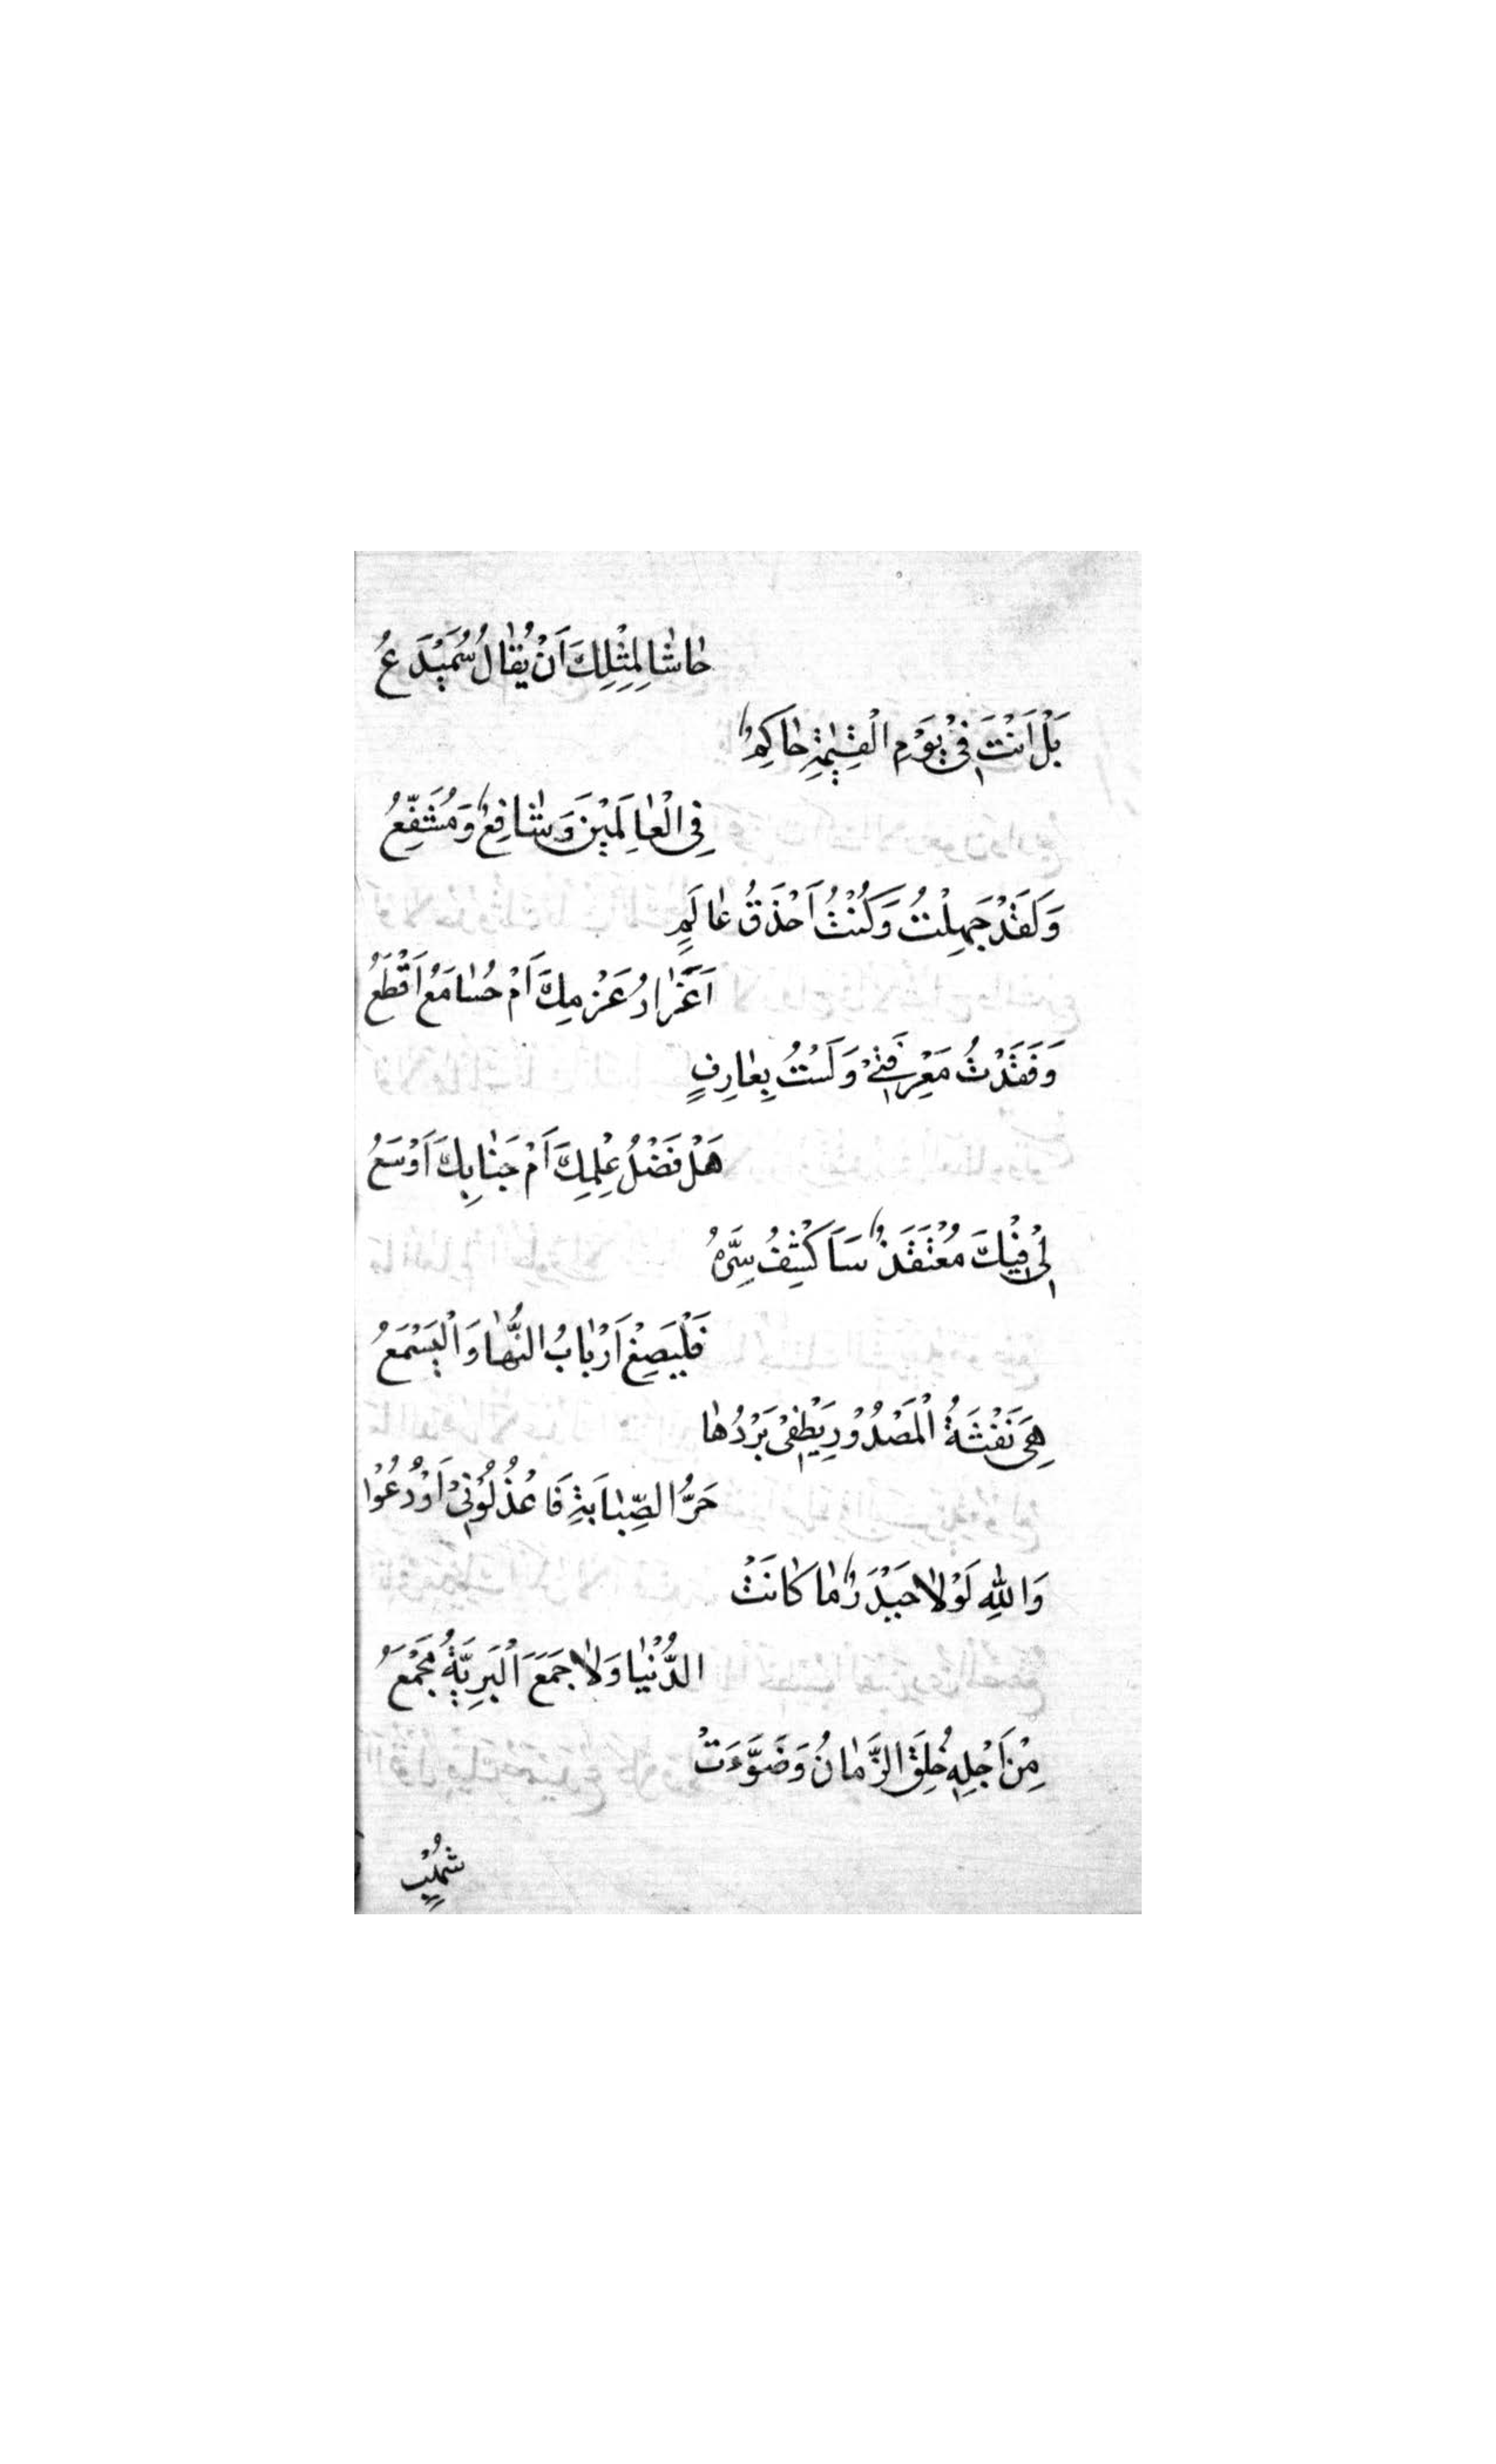 حٰاشٰا لِمِثْلِكَ اَنْ يُقٰالُ سُمَيْدَعُ
بَلْ اَنْتَ فِىْ يَوْمِ الْقِيٰمَةِ حٰاكِمٌ
فِى الْعٰالَمِيْنَ وَشٰافِعٌ وَمُشَفَّعُ
وَلَقَدْ جَهِلْتُ وَكُنْتُ اَحْذَقُ عٰالَمٍ
اَغَرٰارُ عَزْمِكَ اَمْ حُسٰامَعُ اَقْطَعُ
وَفَقَدْتُ مَعْرِفَتِىْ وَلَسْتُ بِعٰارِفٍ
هَلْ فَضْلُ عِلْمِكَ اَمْ جَنٰابِكَ اَوْسَعُ
لِىْ فِيْكَ مُعْتَقَدٌ سَاَكْشِفُ سِرَّهُ
فَلْيَصِغْ اَرْبٰابُ النُّهٰا وَالْيَسْمَعُ
هِىَ نَفْثَةُ الْمَصْدُوْرِ يَطْفِىْ بَرْدُهٰا
حَرُّ الصِّبٰابَةِ فَاعْذُلُوْنِىْ اَوْدُعُوْا
وَاللّٰهِ لَوْلٰا حَيْدَرٌ مٰا كٰانَتْ
الدُّنْيٰا وَلٰا جَمَعَ الْبَرِيَّةُ مَجْمَعُ
مِنْ اَجْلِهِ خُلِقَ الزَّمٰانُ وَضَوَّءَتْ
شُهُبٌ